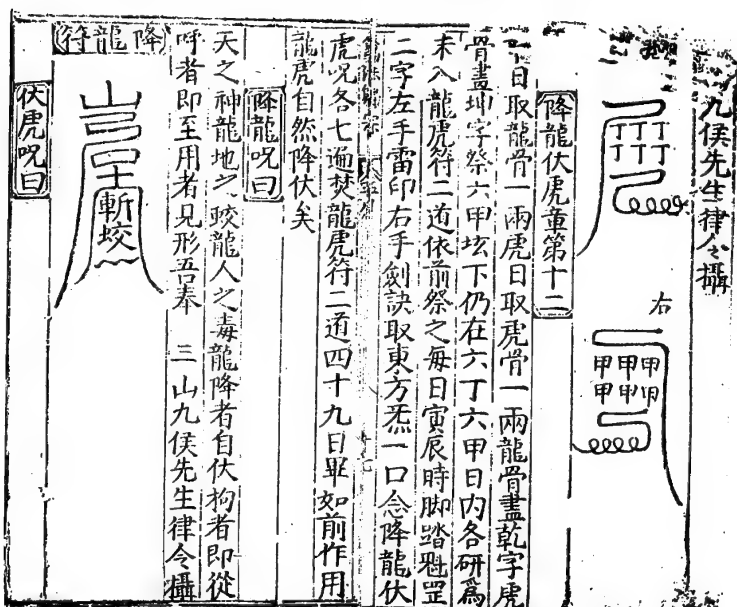 九侯先生律令攝
丁丁丁
丁丁丁
右
甲甲甲
甲甲甲
降龍伏虎章第十二
日取龍骨一兩虎日取虎骨一兩龍骨畫乾字虎
骨畫坤字祭六甲壇下仍在六丁六甲日內各研爲
末入龍虎符二道依前祭之每日寅辰時脚踏魁罡
二字左手雷印右手劍訣取東方炁一口念降龍伏
虎呪各七遍焚龍虎符二道四十九日畢如前作用
龍虎自然降伏矣
降龍呪曰
天之神龍地之蛟龍人之毒龍降者自伏拘者即從
呼者即至用者見形吾奉 三山九侯先生律令攝
降龍符
斬蛟
伏虎呪曰